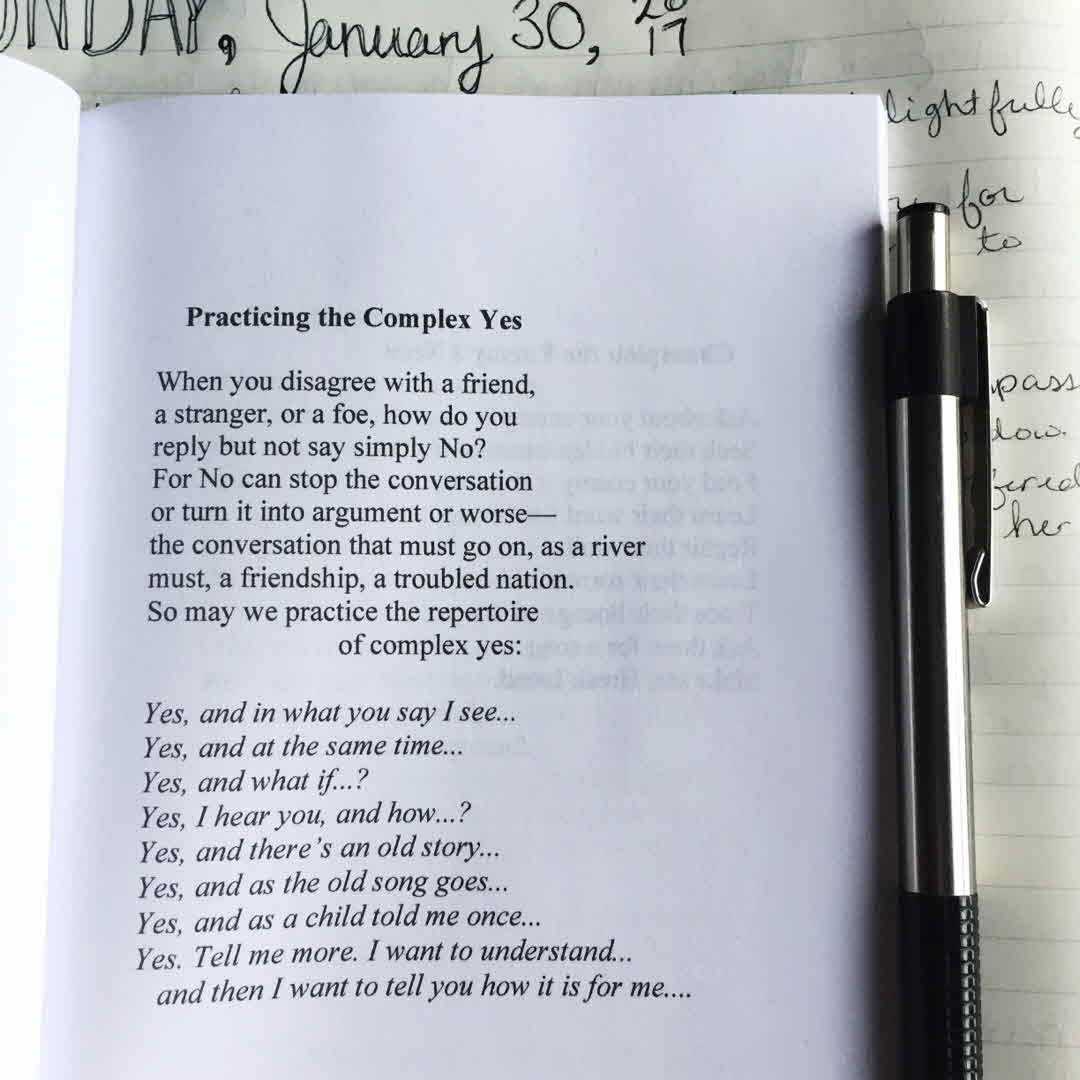 ONDAY, January 30, 2017
lightfully
for
to
Practicing the Complex Yes
When you disagree with a friend,
a stranger, or a foe, how do you
reply but not say simply No?
For No can stop the conversation
or turn it into argument or worse—
the conversation that must go on, as a river
must, a friendship, a troubled nation.
So may we practice the repertoire
of complex yes:
Yes, and in what you say I see...
Yes, and at the same time...
Yes, and what if...?
Yes, I hear you, and how...?
Yes, and there's an old story...
Yes, and as the old song goes...
Yes, and as a child told me once...
Yes. Tell me more. I want to understand...
and then I want to tell you how it is for me....
pass
her